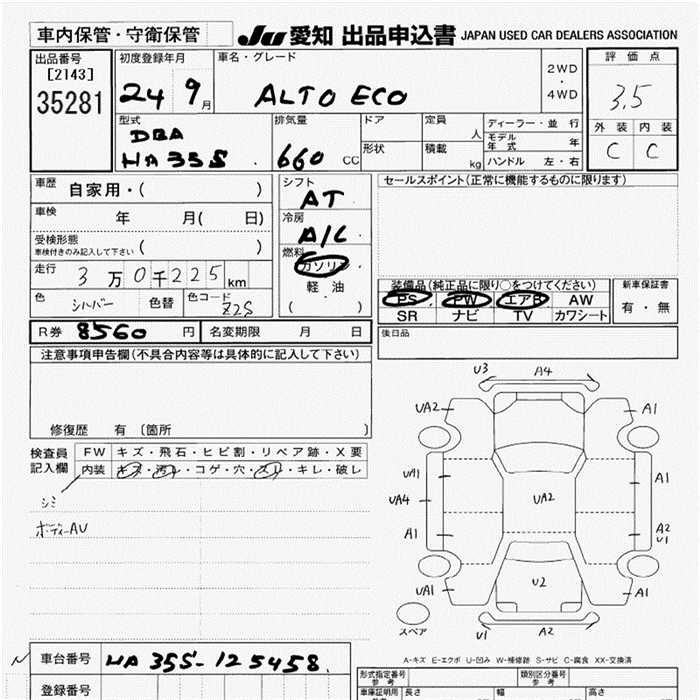 車内保管・守衛保管
JU 愛知 出品申込書 JAPAN USED CAR DEALERS ASSOCIATION
出品番号
[2143]
35281
初度登録年月
24 9月
車名・グレード
ALTO ECO
2WD
・
4WD
評価点
3.5
外装 内装
C C
型式
DBA
HA35S
排気量
660 CC
ドア
形状
定員 人
積載 kg
ディーラー・並行
モデル年式 年
ハンドル 左・右
車歴 自家用・( )
車検 年 月( 日)
受検形態
車検付きのみ記入して下さい ( )
走行 3万0千225km
色 シルバー 色替 色コード Z2S
シフト
AT
冷房
A/C
燃料
ガソリン
軽油
( )
セールスポイント(正常に機能するものに限ります)
装備品(純正品に限り○をつけてください)
PS PW エアB AW
SR ナビ TV カワシート
新車保証書
有・無
後日品
R券 8560円 名変期限 月 日
注意事項申告欄(不具合内容等は具体的に記入して下さい)
修復歴 有 〔箇所 )
検査員
記入欄
FW キズ・飛石・ヒビ割・リペア跡・X要
内装 キズ・汚レ・コゲ・穴・スレ・キレ・破レ
シミ
ボディーAU
U3 A4
UA2 A1
UA1 A1
UA4 UA2
A1 A2
U1
UA1 U2 A1
U1 A2
スペア
A-キズ E-エクボ U-凹み W-補修跡 S-サビ C-腐食 XX-交換済
車台番号 HA35S-125458
登録番号
型式指定番号
参考
類別区分番号
参考
車庫証明用
参考
長さ 幅 高さ